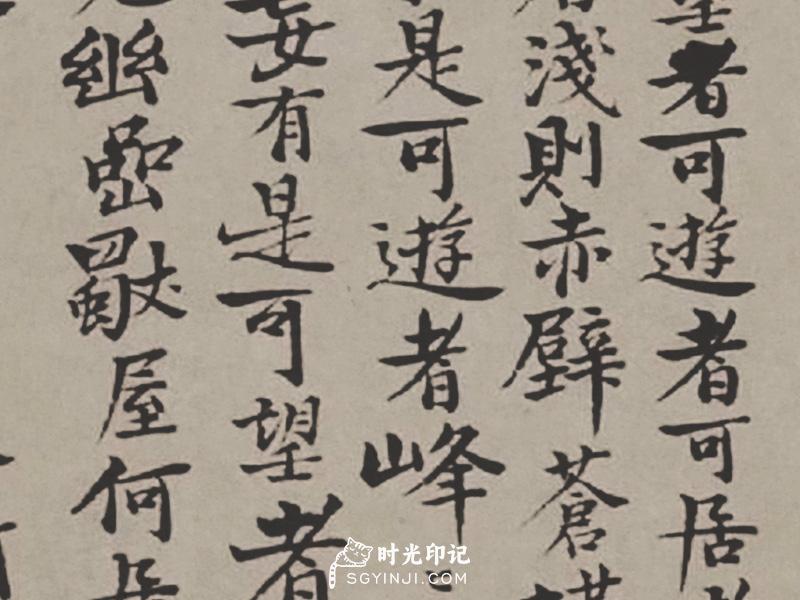 者可遊者可居
淺則赤壁蒼
是可遊者峰
妄有是可望者
幽
屋何居
时光印记
SGYINJI.COM